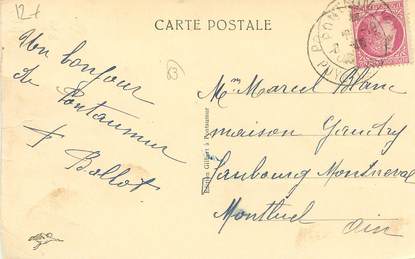 12+
CARTE POSTALE
Un bonjour
de Pontaumur
Bollot
83
Edition Gilbert à Pontaumur
Mme Marcel Blanc
maison Gautry
Faubourg Montreval
Montluel
Ain